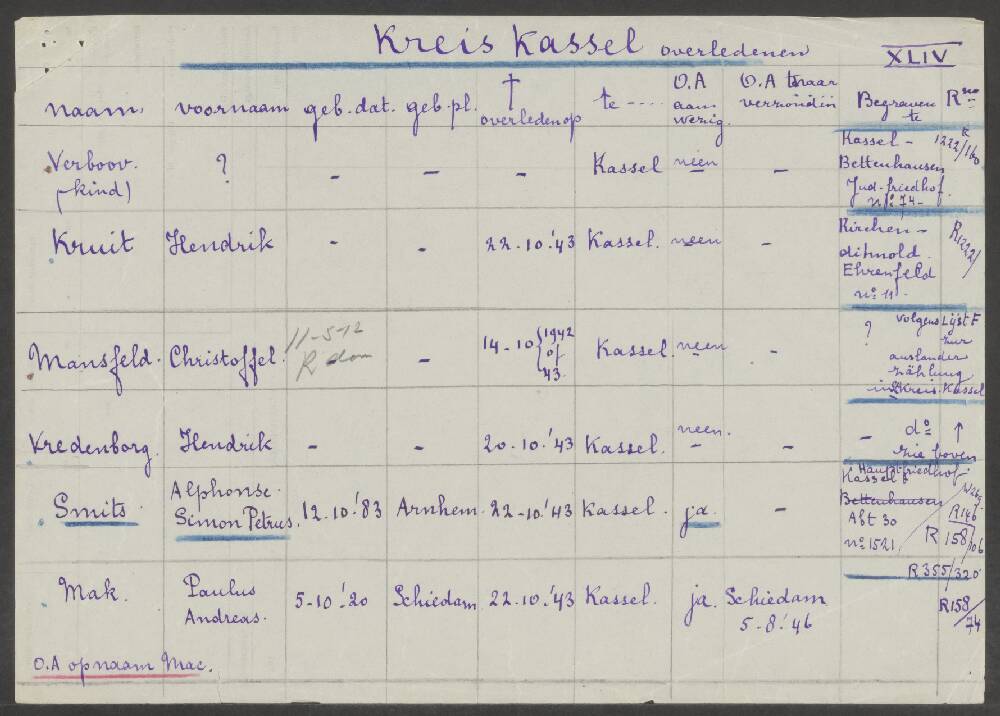 Kreis Kassel overledenen
XLIV
naam. voornaam geb. dat. geb. pl. † overleden op te .... O.A aanwezig. O.A naar verzonden in Begraven te R no
Verboov. (kind) ? - - - Kassel neen -
Kassel -
Bettenhausen
Jud-friedhof
no 74-
R 1222/160
Kruit Hendrik - - 22-10-'43 Kassel. neen -
Kirchen-
ditmold.
Ehrenfeld
no 11-
R1222/
Mansfeld. Christoffel. 11-5-12 R dam - 14-10 {1942 of 43. Kassel. neen -
? volgens Lijst F
zur
auslander
zählung
in Kreis Kassel
Vredenborg. Hendrik - - 20-10-'43 Kassel. neen. - -
- do ↑
zie boven
Smits. Alphonse. Simon Petrus. 12-10-'83 Arnhem. 22-10-'43 Kassel. ja. -
Hauptfriedhof
Kassel
Bettenhausen
Abt 30
no 1521
R146
R 158/106
R355/320
Mak. Paulus Andreas. 5-10-'20 Schiedam 22-10-'43 Kassel. ja. Schiedam 5-8-'46
R158/74
O.A op naam Mac.